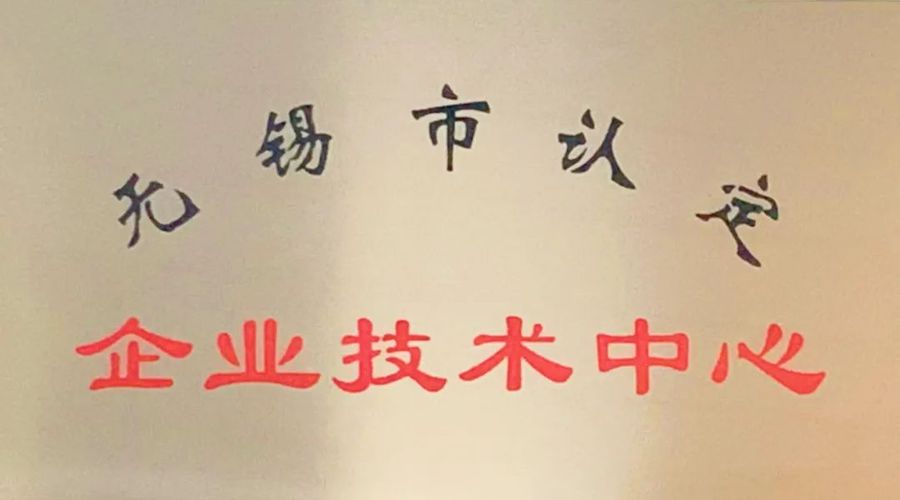 无锡市认定
企业技术中心